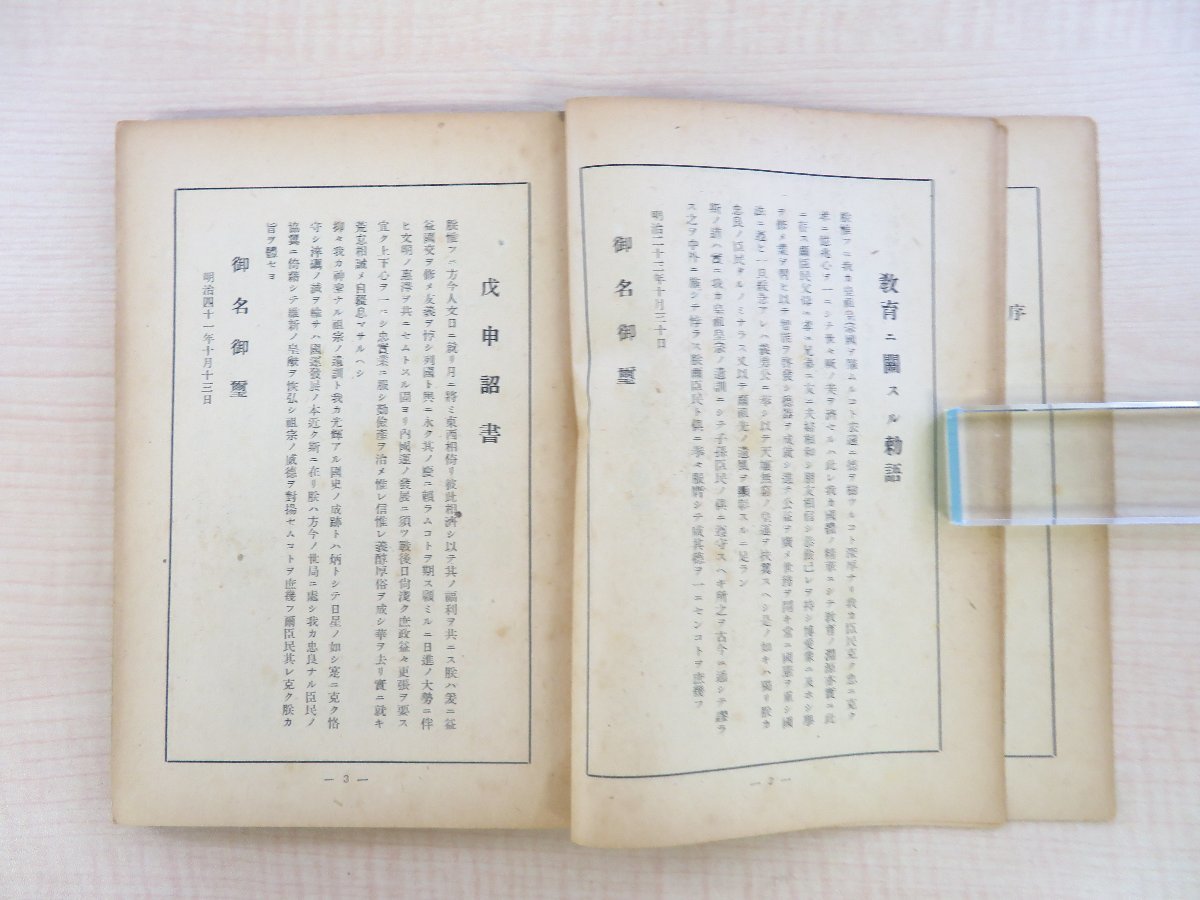 序
教育ニ關スル勅語
朕惟フニ我カ皇祖皇宗國ヲ肇ムルコト宏遠ニ德ヲ樹ツルコト深厚ナリ我カ臣民克ク忠ニ克ク
孝ニ億兆心ヲ一ニシテ世々厥ノ美ヲ濟セルハ此レ我カ國體ノ精華ニシテ敎育ノ淵源亦實ニ此
ニ存ス爾臣民父母ニ孝ニ兄弟ニ友ニ夫婦相和シ朋友相信シ恭儉己レヲ持シ博愛衆ニ及ホシ學
ヲ修メ業ヲ習ヒ以テ智能ヲ啓發シ德器ヲ成就シ進テ公益ヲ廣メ世務ヲ開キ常ニ國憲ヲ重シ國
法ニ遵ヒ一旦緩急アレハ義勇公ニ奉シ以テ天壤無窮ノ皇運ヲ扶翼スヘシ是ノ如キハ獨リ朕カ
忠良ノ臣民タルノミナラス又以テ爾祖先ノ遺風ヲ顯彰スルニ足ラン
斯ノ道ハ實ニ我カ皇祖皇宗ノ遺訓ニシテ子孫臣民ノ俱ニ遵守スヘキ所之ヲ古今ニ通シテ謬ラ
ス之ヲ中外ニ施シテ悖ラス朕爾臣民ト俱ニ拳々服膺シテ咸其德ヲ一ニセンコトヲ庶幾フ
明治二十三年十月三十日
御名御璽
— 2 —
戊申詔書
朕惟フニ方今人文日ニ就リ月ニ將ミ東西相倚リ彼此相濟シ以テ其ノ福利ヲ共ニス朕ハ爰ニ益
益國交ヲ修メ友義ヲ惇シ列國ト與ニ永ク其ノ慶ニ賴ラムコトヲ期ス顧ミルニ日進ノ大勢ニ伴
ヒ文明ノ惠澤ヲ共ニセムトスル固ヨリ內國運ノ發展ニ須ツ戰後日尙淺ク庶政益々更張ヲ要ス
宜ク上下心ヲ一ニシ忠實業ニ服シ勤儉產ヲ治メ惟レ信惟レ義醇厚俗ヲ成シ華ヲ去リ實ニ就キ
荒怠相誡メ自彊息マサルヘシ
抑々我カ神聖ナル祖宗ノ遺訓ト我カ光輝アル國史ノ成跡トハ炳トシテ日星ノ如シ寔ニ克ク恪
守シ淬礪ノ誠ヲ輸サハ國運發展ノ本近ク斯ニ在リ朕ハ方今ノ世局ニ處シ我カ忠良ナル臣民ノ
協翼ニ倚藉シテ維新ノ皇猷ヲ恢弘シ祖宗ノ威德ヲ對揚セムコトヲ庶幾フ爾臣民其レ克ク朕カ
旨ヲ體セヨ
御名御璽
明治四十一年十月十三日
— 3 —